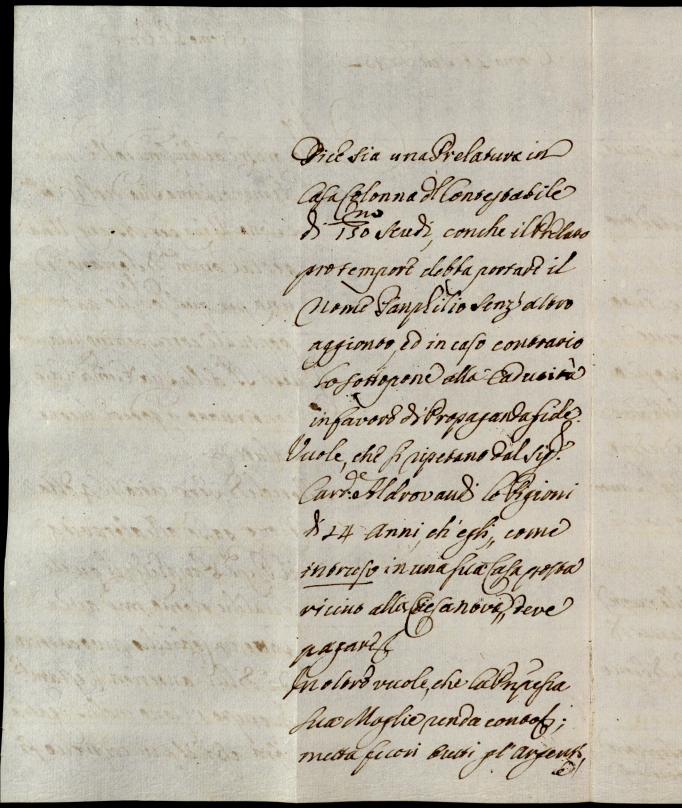 Dice sia una Prelatura in
Casa Colonna del Contestabile
di 150 mo scudi, con che il Prelato
pro tempore debba portare il
Nome Panphilio senz'altro
aggionto, ed in caso contrario
lo sottopone alla Caducità
in favore di Propaganda fide.
Vuole, che si ripetano dal Sigr.
Card.le Aldrovandi le Pigioni
di 14 Anni, ch'egli, come
intruso in una sua Casa posta
vicino alla Chiesa nova, deve
pagare.
Inoltre vuole, che la Prpesa
sua Moglie renda conto;
metta fuori tutti gl'Argenti,